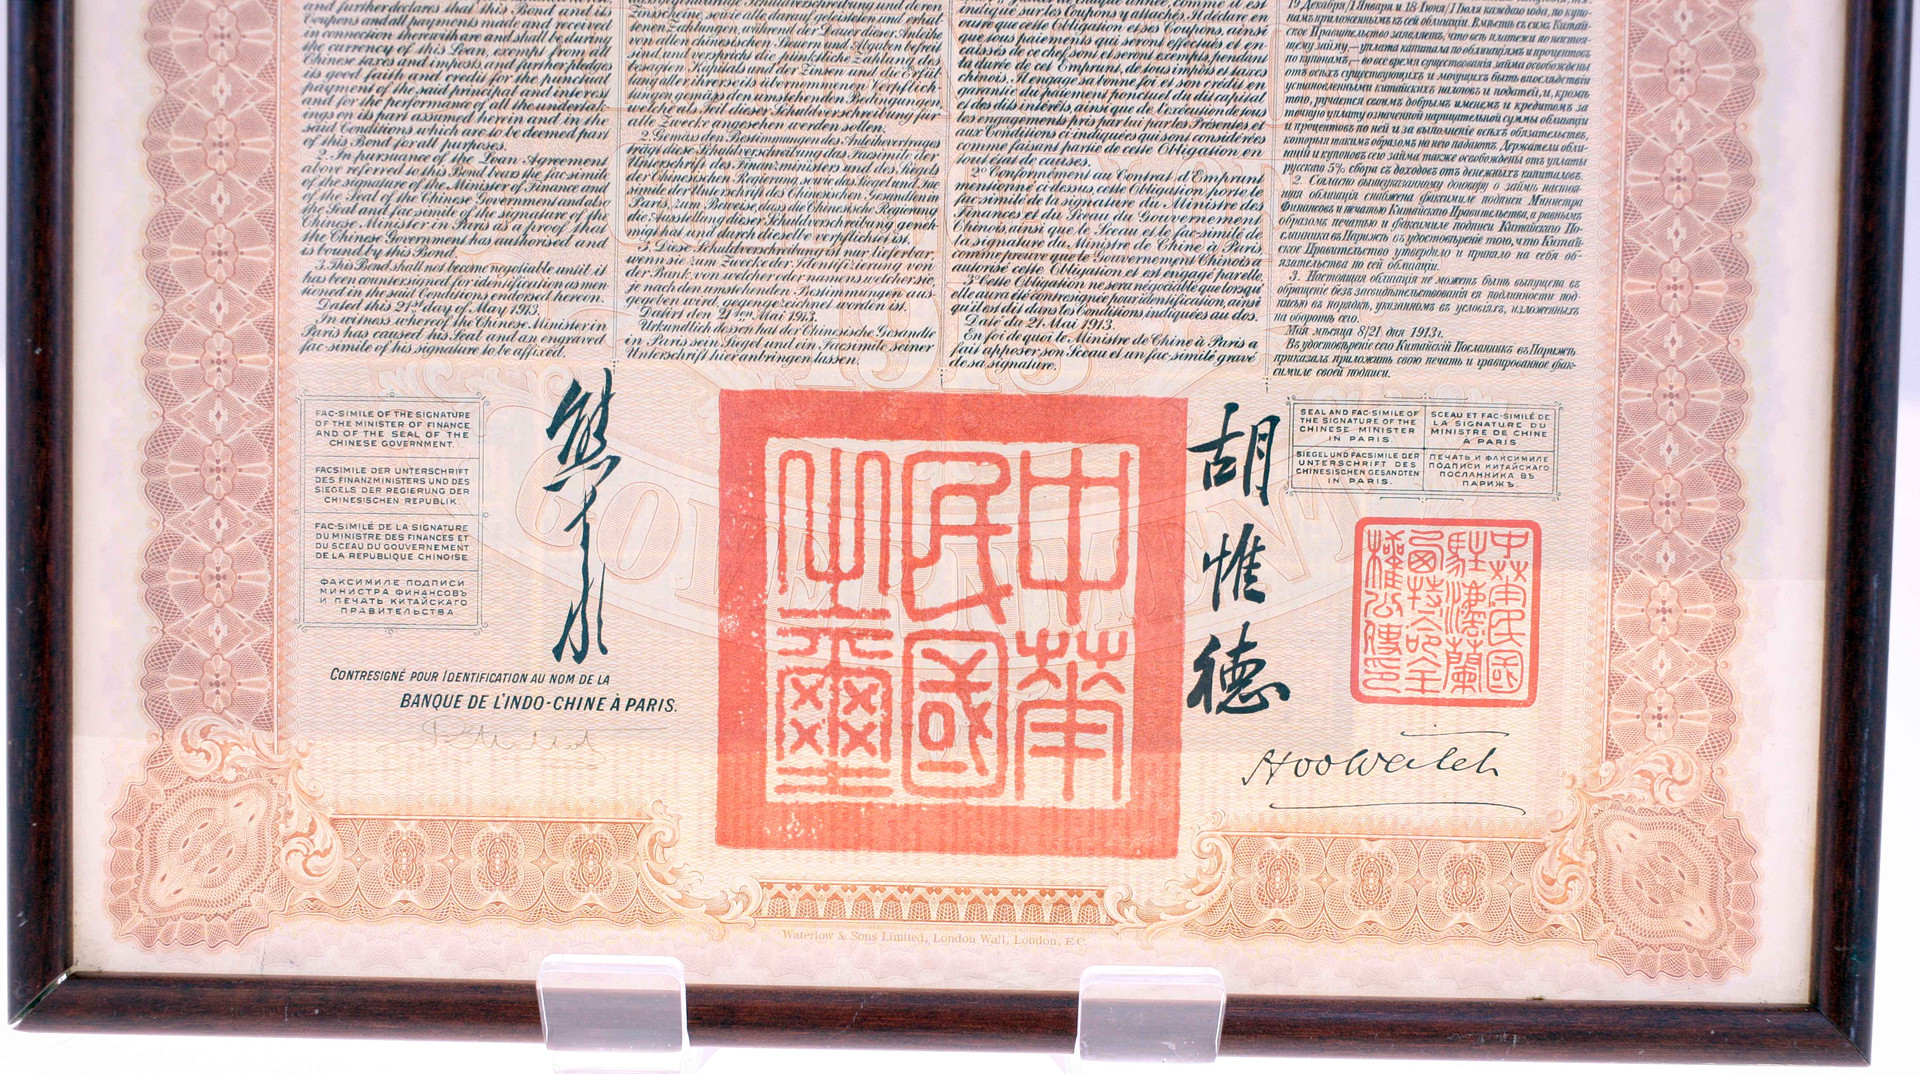 and further declares that this Bond and its
Coupons and all payments made and received
in connection therewith are and shall be, during
the currency of this Loan, exempt from all
Chinese taxes and imposts, and further pledges
its good faith and credit for the punctual
payment of the said principal and interest
and for the performance of all the undertak-
ings on its part assumed herein and in the
said Conditions which are to be deemed part
of this Bond for all purposes.
2. In pursuance of the Loan Agreement
above referred to this Bond bears the fac-simile
of the signature of the Minister of Finance and
of the Seal of the Chinese Government and also
the Seal and fac-simile of the signature of the
Chinese Minister in Paris as a proof that
the Chinese Government has authorised and
is bound by this Bond.
3. This Bond shall not become negotiable until it
has been countersigned for identification as men-
tioned in the said Conditions endorsed hereon.
Dated this 21st day of May 1913.
In witness whereof the Chinese Minister in
Paris has caused his Seal and an engraved
fac-simile of his signature to be affixed.
Zinsscheine, sowie alle darauf geleisteten und erhal-
tenen Zahlungen, während der Dauer dieser Anleihe
von allen chinesischen Steuern und Abgaben befreit
sind, und verspricht die pünktliche Zahlung des
besagten Kapitals und der Zinsen und die Erfül-
lung aller ihrerseits übernommenen Verpflich-
tungen gemäss den umstehenden Bedingungen,
welche als Teil dieser Schuldverschreibung für
alle Zwecke angesehen werden sollen.
2. Gemäss den Bestimmungen des Anleihevertrages
trägt diese Schuldverschreibung das Facsimile der
Unterschrift des Finanzministers und des Siegels
der Chinesischen Regierung, sowie das Siegel und Fac-
simile der Unterschrift des Chinesischen Gesandten in
Paris, zum Beweise, dass die Chinesische Regierung
die Ausstellung dieser Schuldverschreibung geneh-
migt hat und durch dieselbe verpflichtet ist.
3. Diese Schuldverschreibung ist nur lieferbar,
wenn sie zum Zweck der Identifizierung von
der Bank, von welcher oder namens welcher sie,
je nach den umstehenden Bestimmungen aus-
gegeben wird, gegengezeichnet worden ist.
Datirt den 21ten Mai 1913.
Urkundlich dessen hat der Chinesische Gesandte
in Paris sein Siegel und ein Facsimile seiner
Unterschrift hier anbringen lassen.
indiqué sur les Coupons y attachés. Il déclare en
outre que cette Obligation et ses Coupons, ainsi
que tous paiements qui seront effectués et en-
caissés de ce chef, sont et seront exempts pendant
la durée de cet Emprunt, de tous impôts et taxes
chinois. Il engage sa bonne foi et son crédit en
garantie du paiement ponctuel du dit capital
et des dits intérêts, ainsi que de l'exécution de tous
les engagements pris par lui par les Présentes et
aux Conditions ci-indiquées qui sont considérées
comme faisant partie de cette Obligation en
tout état de causes.
2° Conformément au Contrat d'Emprunt
mentionné ci-dessus, cette Obligation porte le
fac-simile de la signature du Ministre des
Finances et du Sceau du Gouvernement
Chinois, ainsi que le Sceau et le fac-similé de
la signature du Ministre de Chine à Paris
comme preuve que le Gouvernement Chinois a
autorisé cette Obligation et est engagé par elle.
3° Cette Obligation ne sera négociable que lorsqu'
elle aura été contresignée pour identification, ainsi
qu'il est dit dans les Conditions indiquées au dos.
Daté du 21 Mai 1913.
En foi de quoi le Ministre de Chine à Paris a
fait apposer son Sceau et un fac-similé gravé
de sa signature.
19 Декабря/1 Января и 18 Іюня/1 Іюля каждаго года, по купо-
намъ приложеннымъ къ сей облигаціи. Вмѣстѣ съ симъ Китай-
ское Правительство заявляетъ, что всѣ платежи по настоя-
щему займу,—уплата капитала по облигаціямъ и процентовъ
по купонамъ,—во все время существованія займа освобождены
отъ всѣхъ существующихъ и могущихъ быть впослѣдствіи
установленными китайскихъ налоговъ и податей, и, кромѣ
того, ручается своимъ добрымъ именемъ и кредитомъ за
точную уплату означенной нарицательной суммы облигаціи
и процентовъ по ней и за выполненіе всѣхъ обязательствъ,
которыя такимъ образомъ на него падаютъ. Держатели обли-
гацій и купоновъ сего займа также освобождены отъ уплаты
русскаго 5% сбора съ доходовъ отъ денежныхъ капиталовъ.
2. Согласно вышеуказанному договору о займѣ настоя-
щая облигація снабжена факсимиле подписи Министра
Финансовъ и печатью Китайскаго Правительства, а равнымъ
образомъ печатью и факсимиле подписи Китайскаго По-
сланника въ Парижѣ въ удостовѣреніе того, что Китай-
ское Правительство утвердило и приняло на себя об-
язательства по сей облигаціи.
3. Настоящая облигація не можетъ быть выпущена въ
обращеніе безъ засвидѣтельствованія ея подлинности под-
писью въ порядкѣ, указанномъ въ условіяхъ, изложенныхъ
на оборотѣ сего.
Мая мѣсяца 8/21 дня 1913 г.
Въ удостовѣреніе сего Китайскій Посланникъ въ Парижѣ
приказалъ приложить свою печать и гравированное фак-
симиле своей подписи.
1913
GOVERNMENT
FAC-SIMILE OF THE SIGNATURE
OF THE MINISTER OF FINANCE
AND OF THE SEAL OF THE
CHINESE GOVERNMENT.
FACSIMILE DER UNTERSCHRIFT
DES FINANZMINISTERS UND DES
SIEGELS DER REGIERUNG DER
CHINESISCHEN REPUBLIK.
FAC-SIMILÉ DE LA SIGNATURE
DU MINISTRE DES FINANCES ET
DU SCEAU DU GOUVERNEMENT
DE LA REPUBLIQUE CHINOISE
ФАКСИМИЛЕ ПОДПИСИ
МИНИСТРА ФИНАНСОВЪ
И ПЕЧАТЬ КИТАЙСКАГО
ПРАВИТЕЛЬСТВА
CONTRESIGNÉ POUR IDENTIFICATION AU NOM DE LA
BANQUE DE L'INDO-CHINE À PARIS.
中華
民國
之璽
胡惟德
SEAL AND FAC-SIMILE OF
THE SIGNATURE OF THE
CHINESE MINISTER
IN PARIS
SCEAU ET FAC-SIMILÉ DE
LA SIGNATURE DU
MINISTRE DE CHINE
A PARIS
SIEGEL UND FACSIMILE DER
UNTERSCHRIFT DES
CHINESISCHEN GESANDTEN
IN PARIS.
ПЕЧАТЬ И ФАКСИМИЛЕ
ПОДПИСИ КИТАЙСКАГО
ПОСЛАННИКА ВЪ
ПАРИЖѢ.
Hoo Wei Teh
Waterlow & Sons Limited, London Wall, London, E.C.